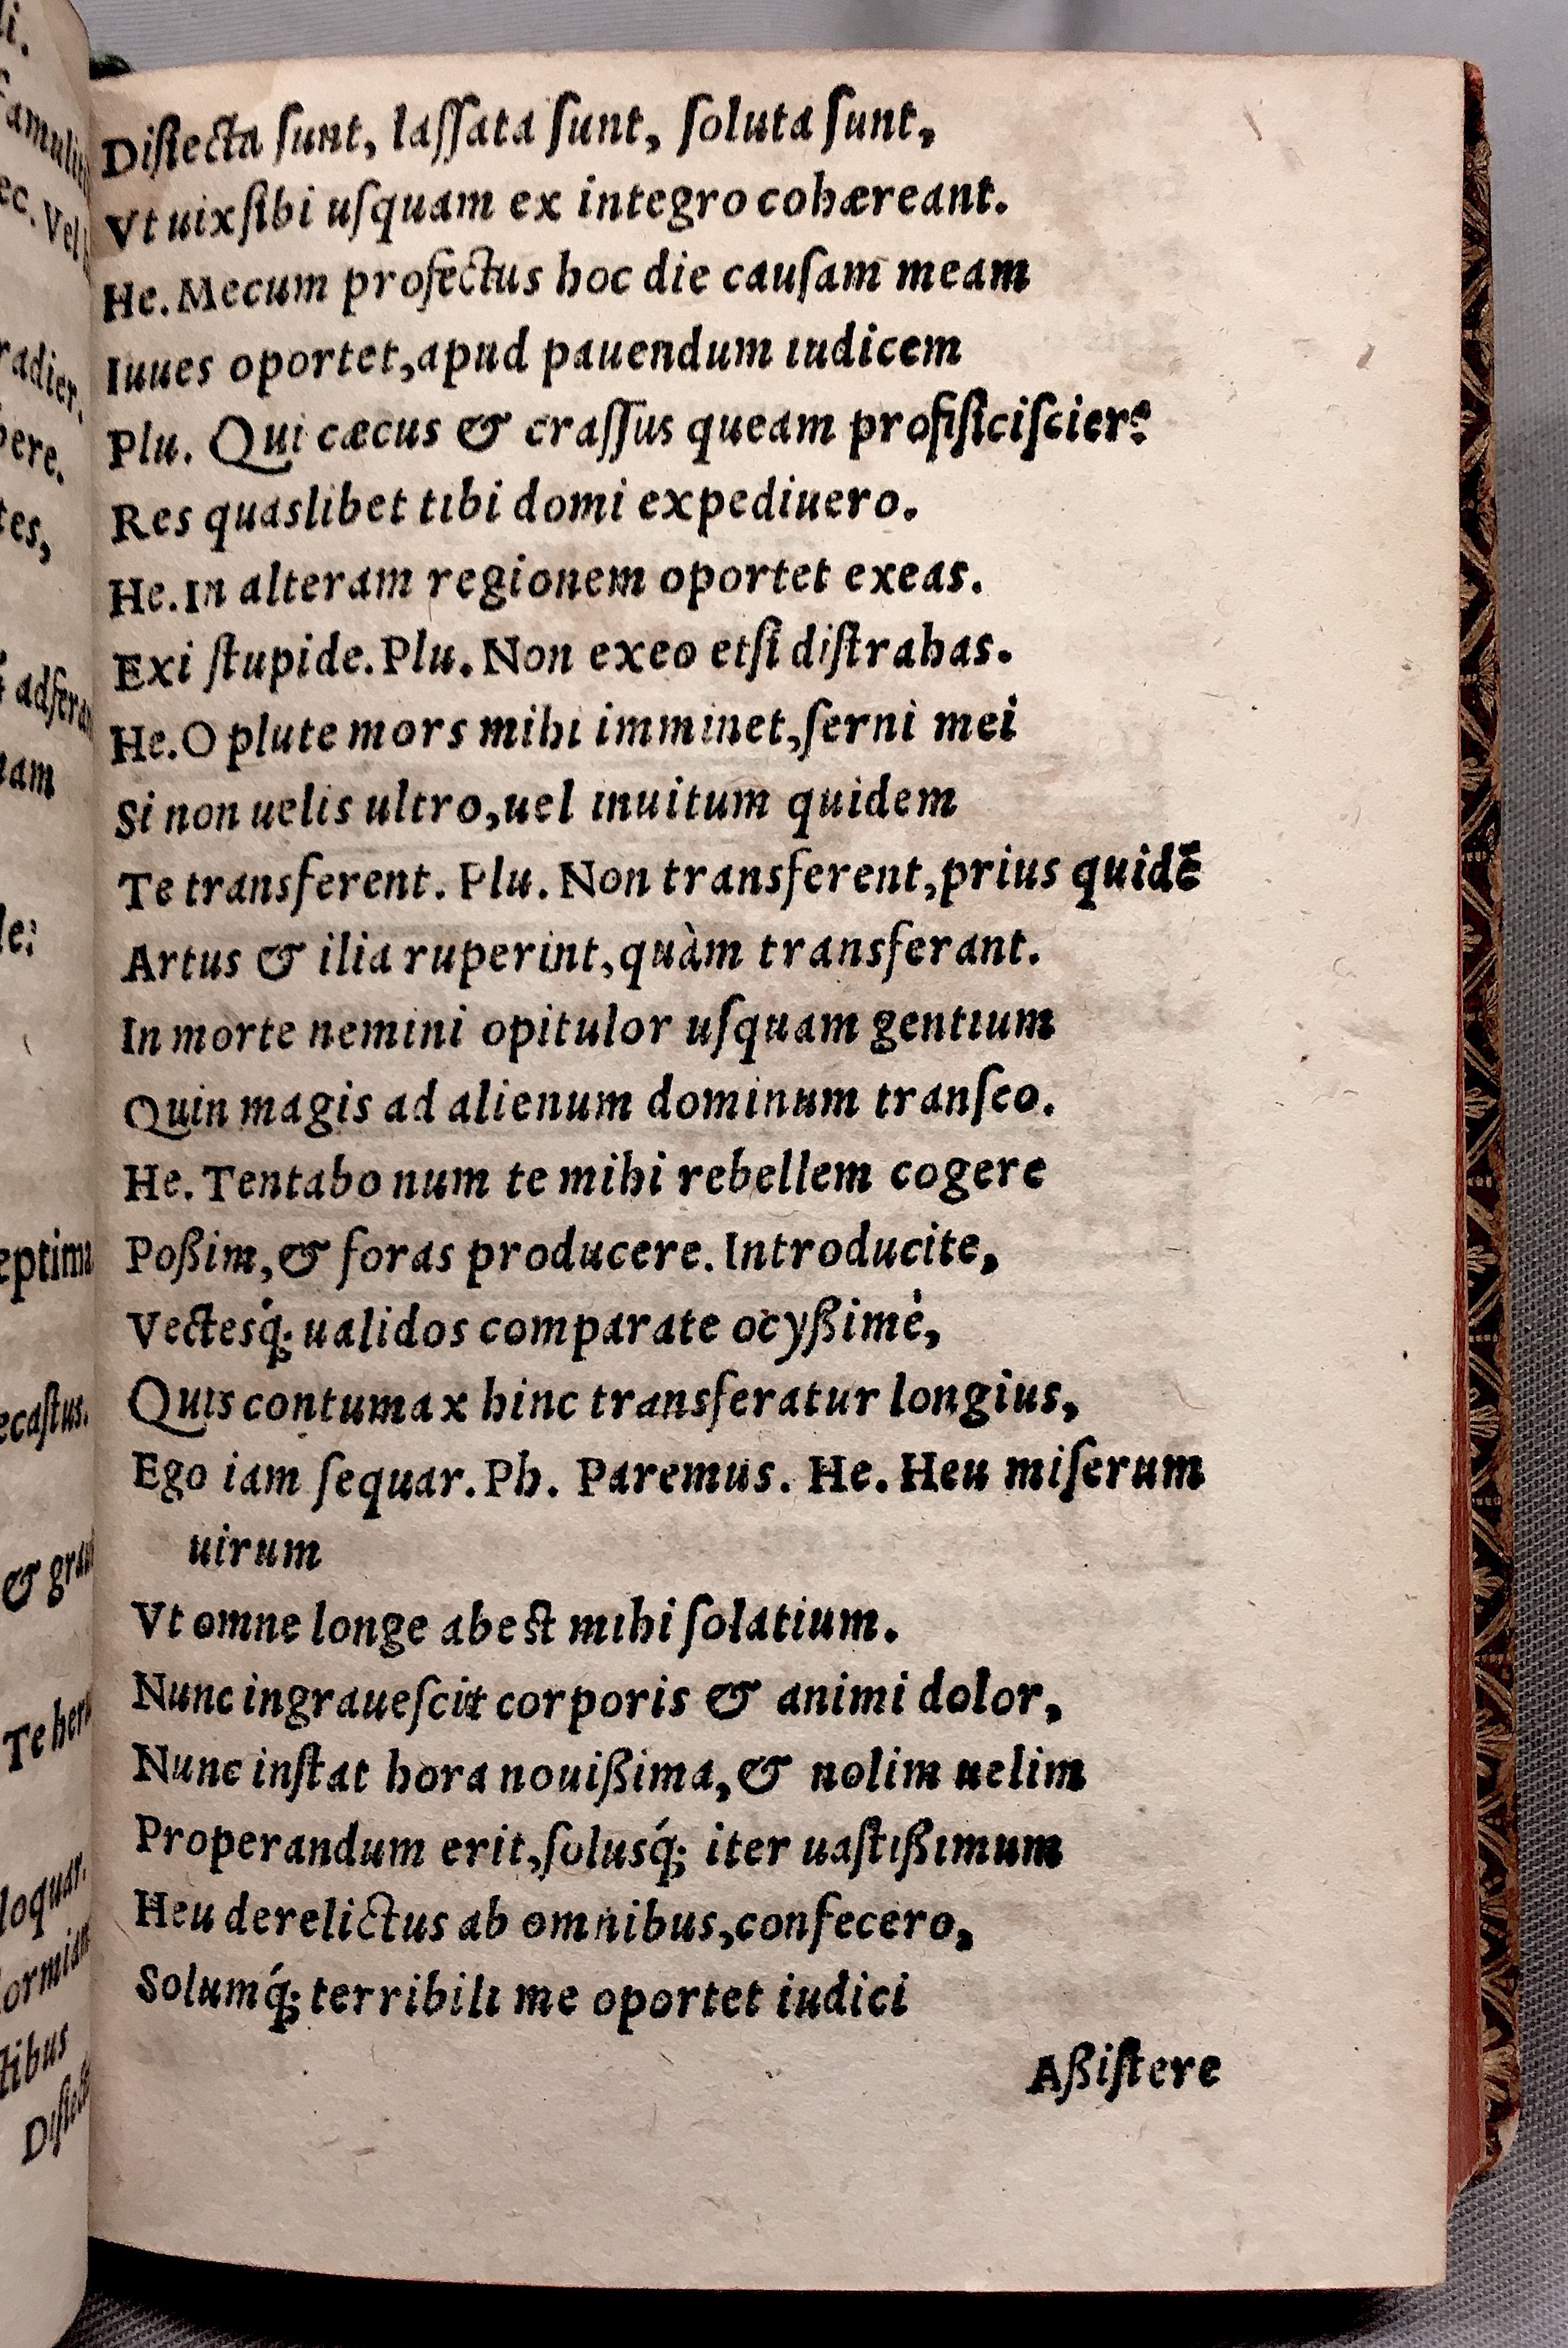 Disiecta ſunt, laſſata ſunt, ſoluta ſunt,
Vt uix ſibi uſquam ex integro cohæreant.
He. Mecum profectus hoc die cauſam meam
Iuues oportet, apud pauendum iudicem
Plu. Qui cæcus & craſſus queam profiſiciſcier?
Res quaslibet tibi domi expediuero.
He. In alteram regionem oportet exeas.
Exi ſtupide. Plu. Non exeo etſi diſtrahas.
He. O plute mors mihi imminet, ſerni mei
Si non uelis ultro, uel inuitum quidem
Te transferent. Plu. Non transferent, prius quidẽ
Artus & ilia ruperint, quàm transferant.
In morte nemini opitulor uſquam gentium
Quin magis ad alienum dominum tranſeo.
He. Tentabo num te mihi rebellem cogere
Poßim, & foras producere. Introducite,
Vectesq́; ualidos comparate ocyßimè,
Quis contumax hinc transferatur longius,
Ego iam ſequar. Ph. Paremus. He. Heu miſerum
uirum
Vt omne longe abest mihi ſolatium.
Nunc ingraueſcit corporis & animi dolor,
Nunc inſtat hora nouißima, & nolim uelim
Properandum erit, ſolusq́; iter uaſtißimum
Heu derelictus ab omnibus, confecero,
Solumq́; terribili me oportet iudici
Aßiſtere